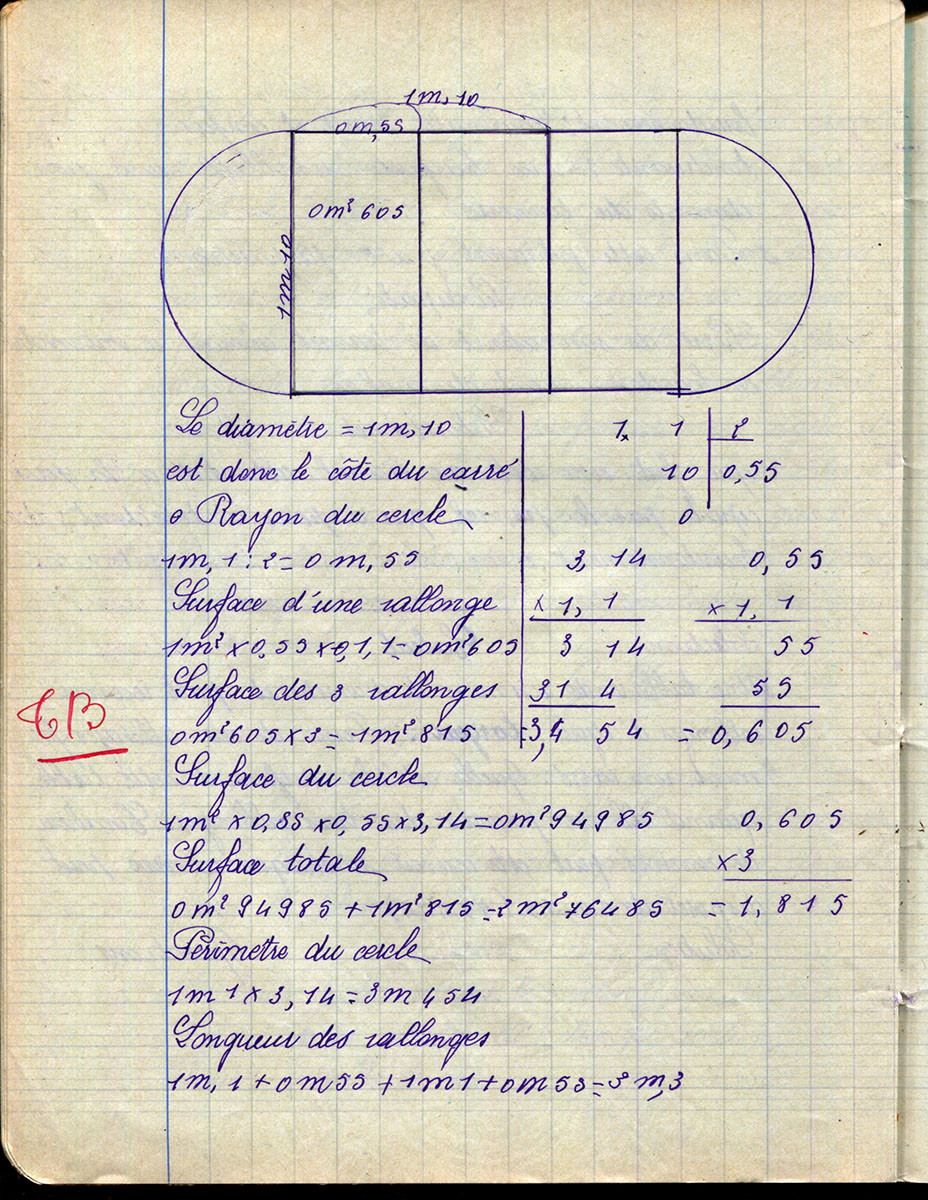 1m,10
0m,55
0m² 605
1m 10
Le diamètre = 1m,10
est donc le côte du carré
Rayon du cercle
1m,1 : 2 = 0 m,55
Surface d'une rallonge
1m² × 0,55 × 0,1,1 = 0m²605
Surface des 3 rallonges
0m²605 × 3 = 1m²815
Surface du cercle
1m² × 0,55 × 0,55 × 3,14 = 0m²94985
Surface totale
0m² 94985 + 1m²815 = 2m²76485
Périmètre du cercle
1m 1 × 3,14 = 3m 454
Longueur des rallonges
1m,1 + 0m55 + 1m1 + 0m55 = 3m,3
1, 1 2
10 0,55
0
3,14 0,55
× 1,1 × 1,1
3 14 55
31 4 55
= 3,4 54 = 0,605
0,605
× 3
= 1,815
TB